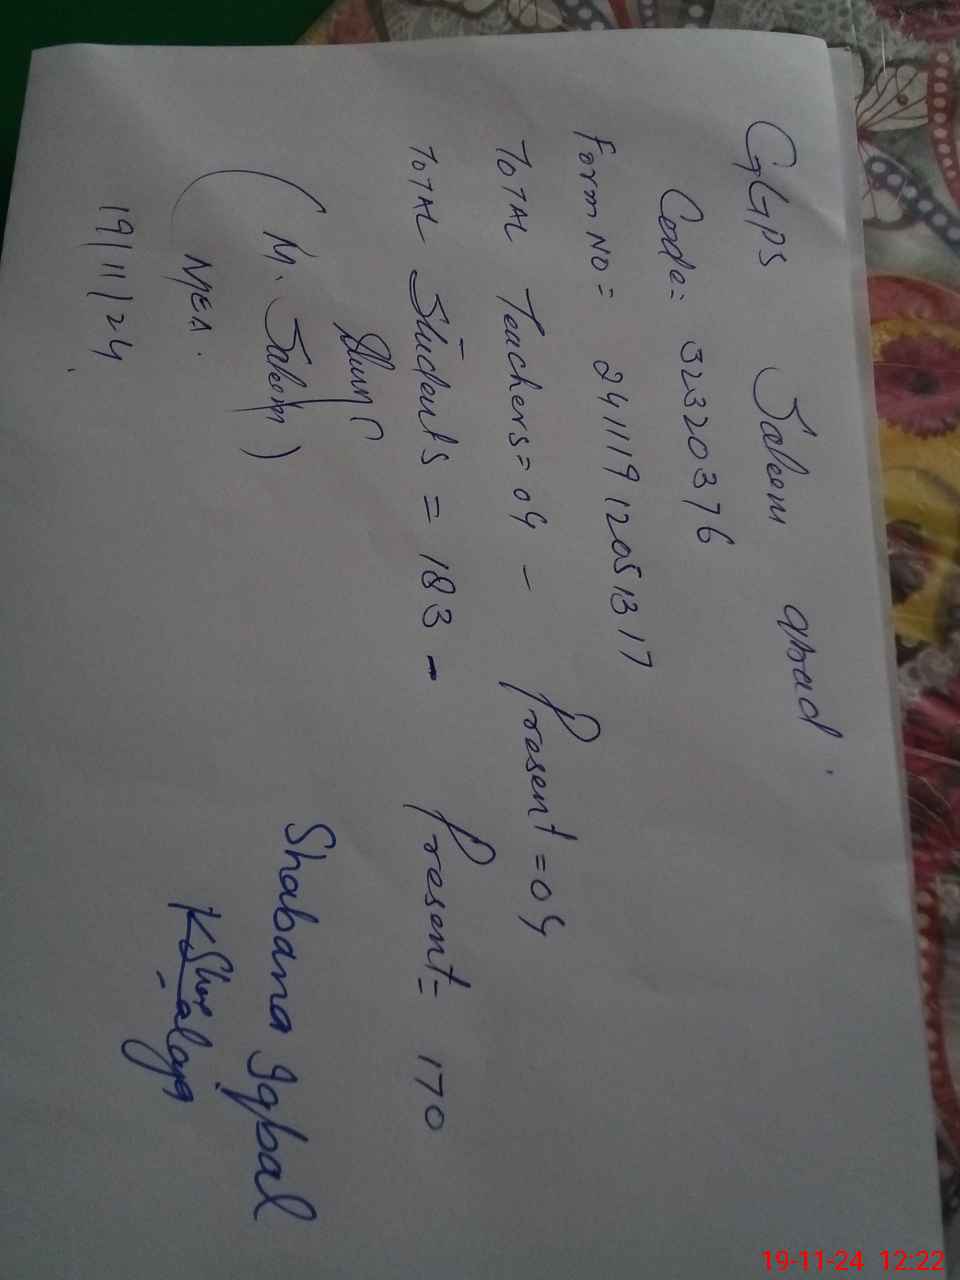 GGPS Saleem abad.
Code = 32320376
Form NO = 24111912051317
TOTAL Teachers = 04 - Present = 04
TOTAL Students = 183 - Present = 170
(M. Saleem)
MEA.
19/11/24.
Shabana Iqbal
19-11-24 12:22